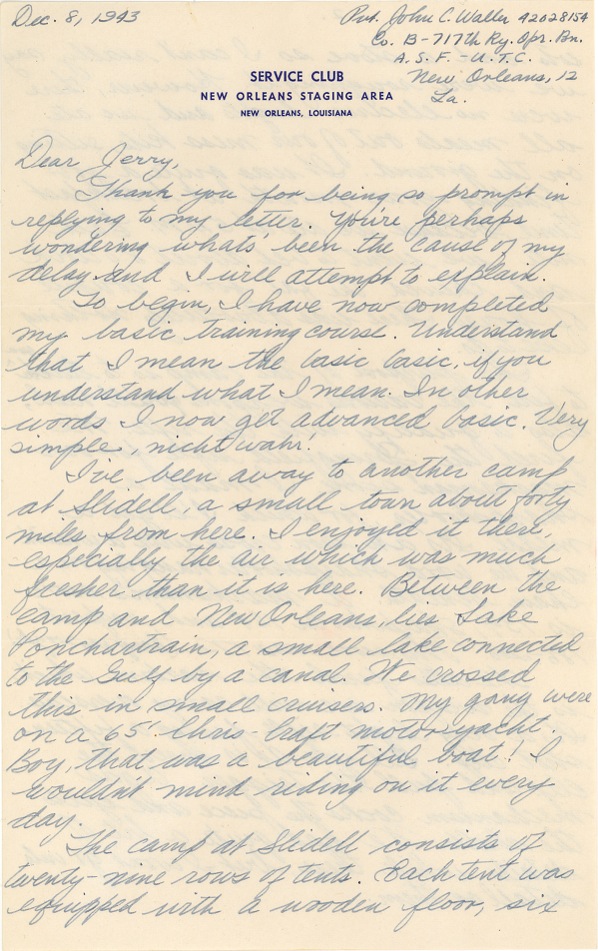 Dec. 8, 1943
Pvt. John C. Waller 42028154
Co. B-717th Ry. Opr. Bn.
A. S. F. - U. T. C.
New Orleans, 12
La.
SERVICE CLUB
NEW ORLEANS STAGING AREA
NEW ORLEANS, LOUISIANA
Dear Jerry,
Thank you for being so prompt in
replying to my letter. You're perhaps
wondering whats been the cause of my
delay and I will attempt to explain.
To begin, I have now completed
my basic training course. Understand
that I mean the basic basic, if you
understand what I mean. In other
words I now get advanced basic. Very
simple, nicht wahr!
I've been away to another camp
at Slidell, a small town about forty
miles from here. I enjoyed it there,
especially the air which was much
fresher than it is here. Between the
camp and New Orleans, lies Lake
Ponchartrain, a small lake connected
to the Gulf by a canal. We crossed
this in small cruisers. My gang were
on a 65' Chris-Craft motor yacht.
Boy, that was a beautiful boat! I
wouldn't mind riding on it every
day.
The camp at Slidell consists of
twenty-nine rows of tents. Each tent was
equipped with a wooden floor, six